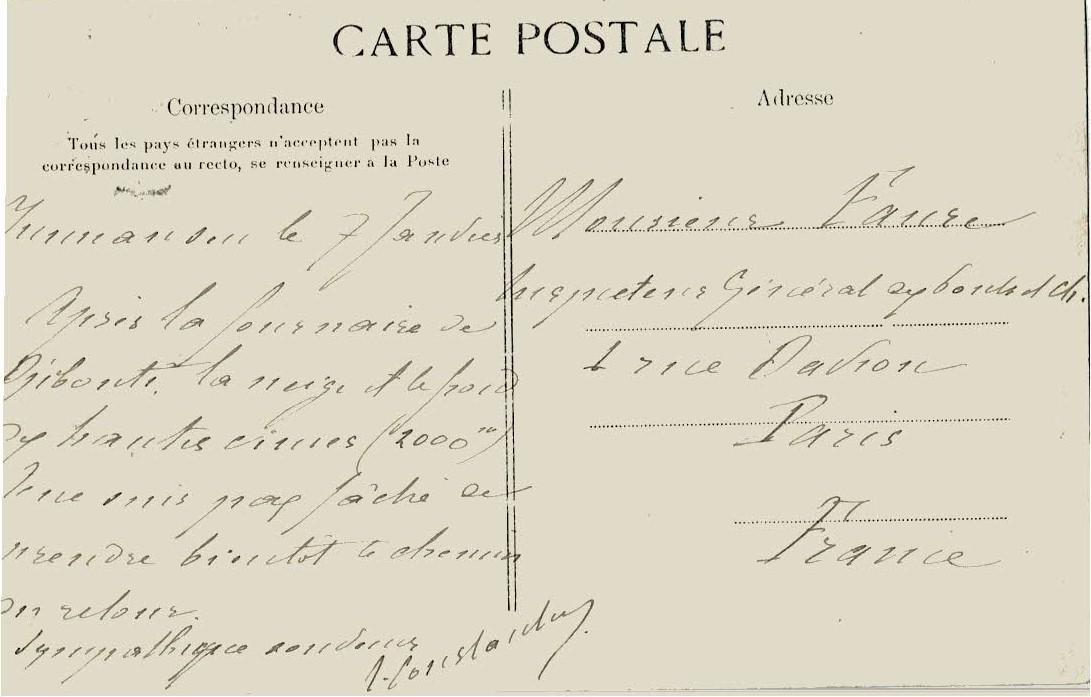 CARTE POSTALE
Correspondance
Tous les pays étrangers n'acceptent pas la
correspondance au recto, se renseigner à la Poste
Yunnansen le 7 Janvier
Après la fournaise de
Djibouti, la neige et le froid
des hautes cimes (2000m)
Je ne suis pas fâché de
prendre bientôt le chemin
du retour.
Sympathique
Adresse
Monsieur Faure
Inspecteur Général des ponts et ch.
1 rue
Paris
France